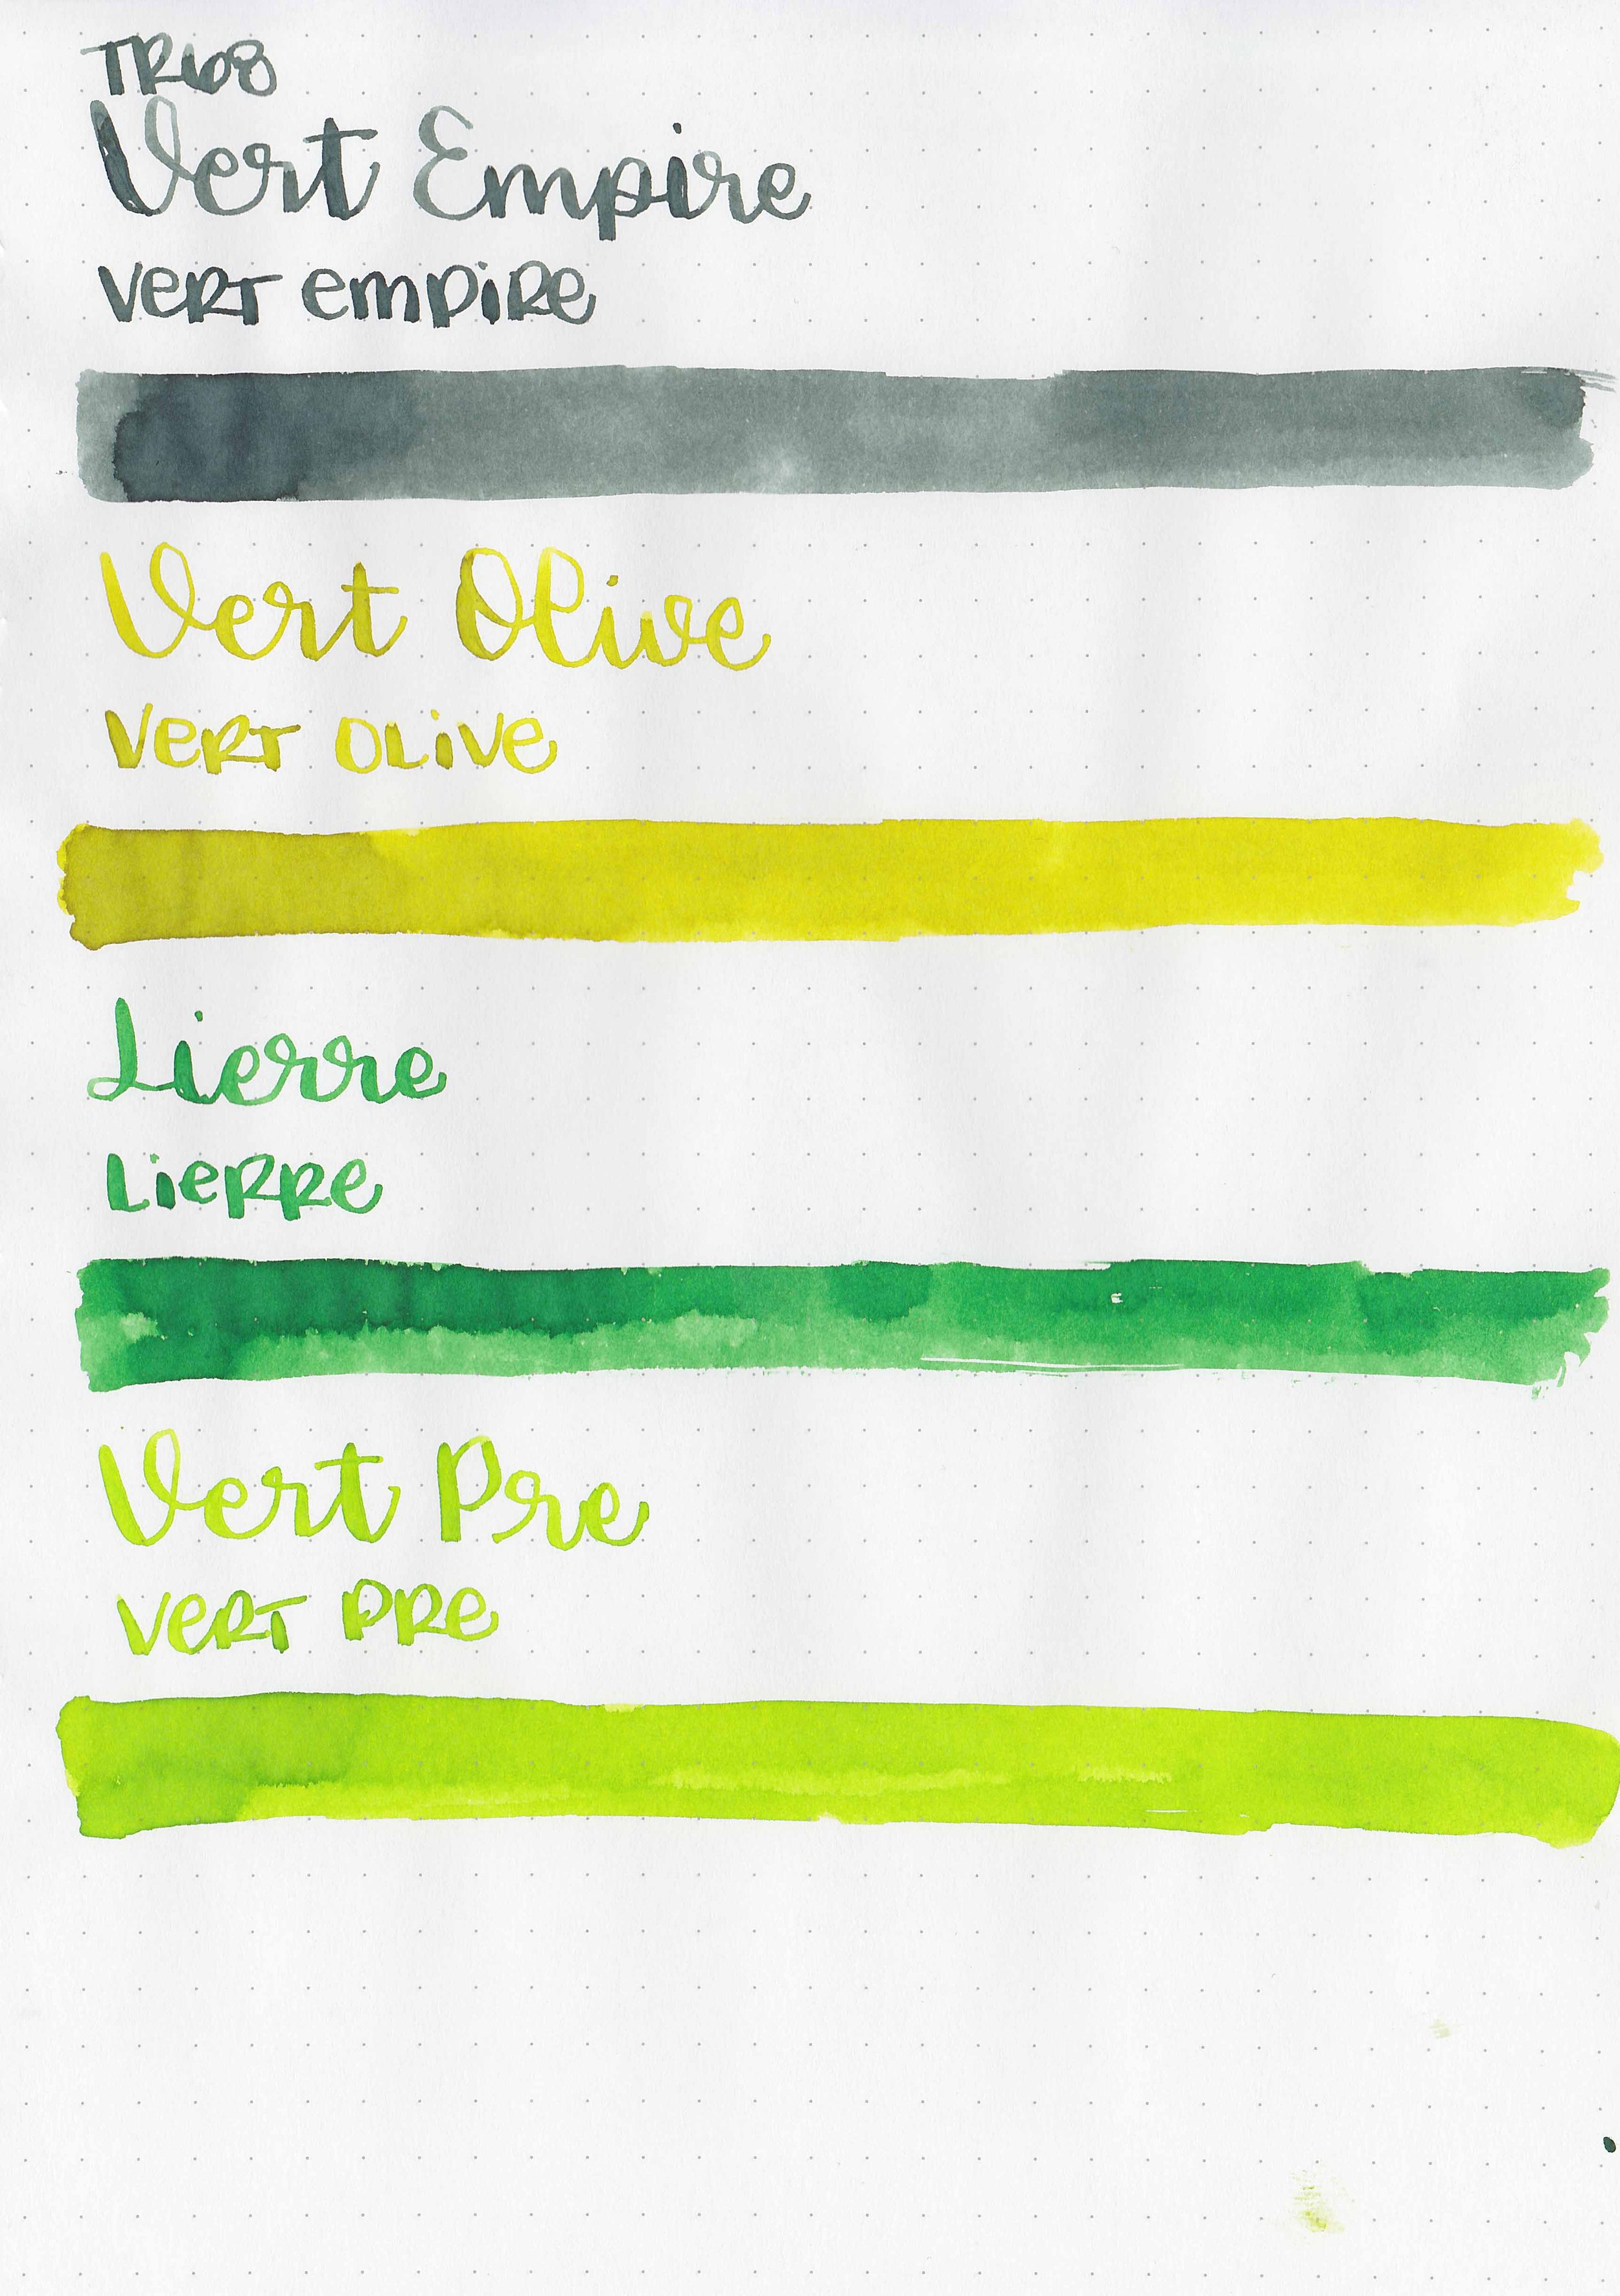 TR68
Vert Empire
VERT EMPIRE
Vert Olive
VERT OLIVE
Lierre
LIERRE
Vert Pre
VERT PRE